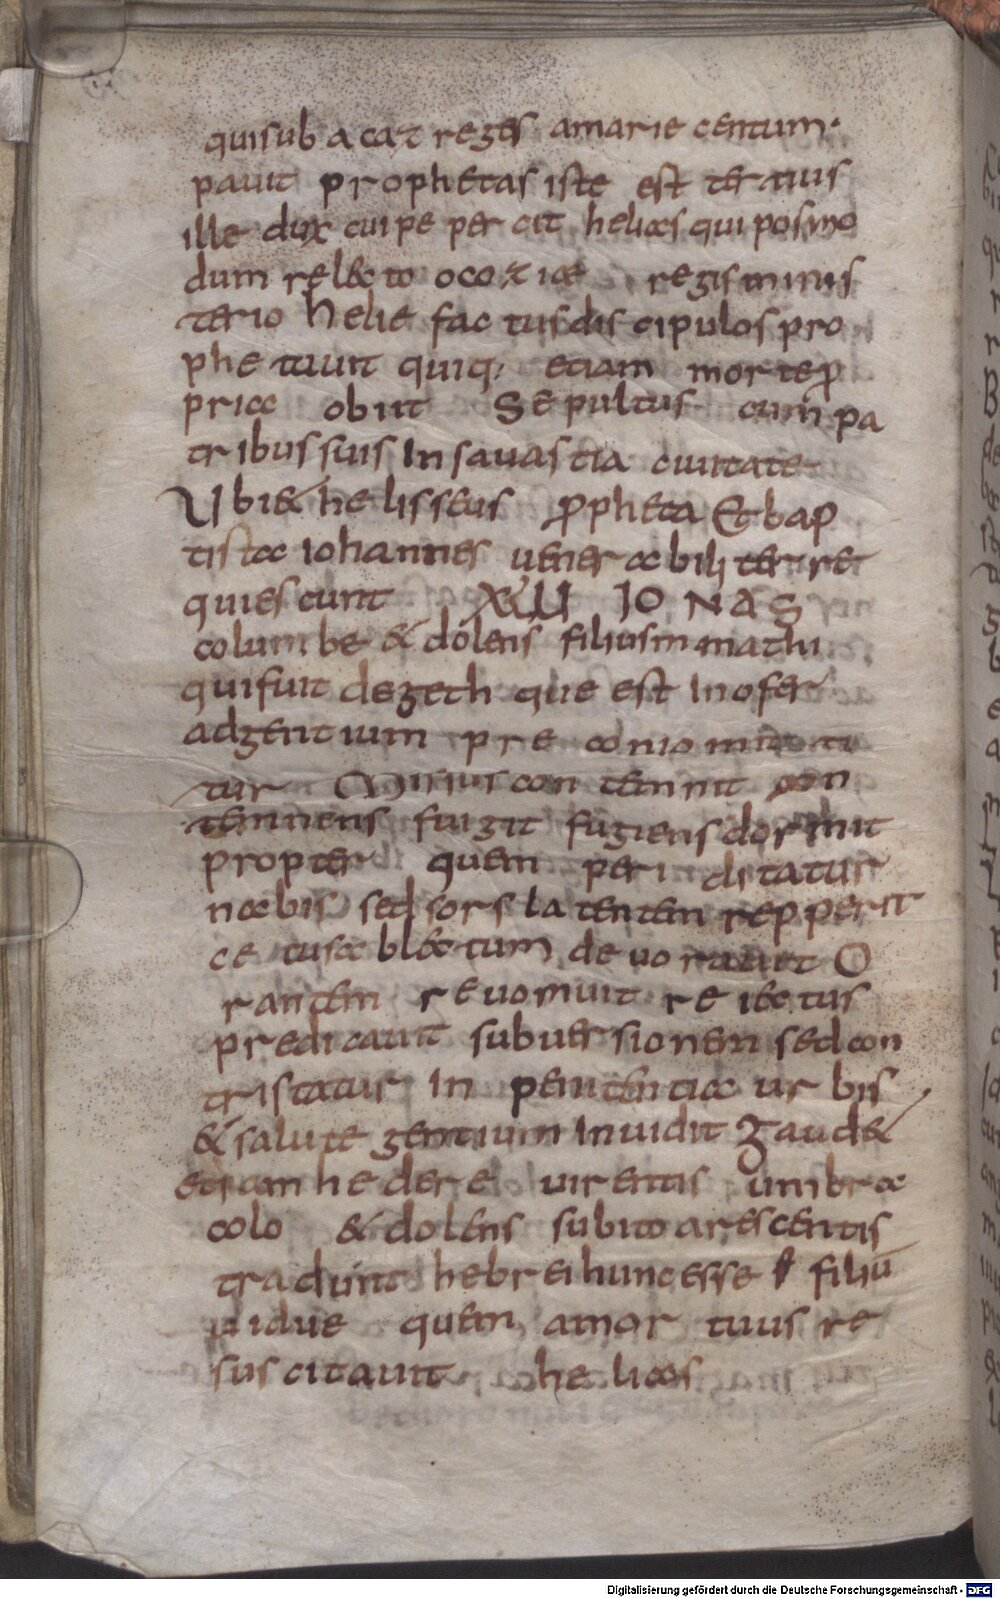 quisub acaz reges amarie centum·
pavit prophetas iste est tertius
ille dux cui pe per cit helias qui posmo
dum relecto ocoziae regis minis
terio helie fac tus discipulos pro
phe tavit quiq; etiam morte ꝓ
pria obiit Sepultus cum pa
tribus suis In savastia civitate
Ubi & he lisseus ꝓpheta Et bap
tista iohannes venerabiliter re
quiescunt XXU IONAS
columbe & dolens filius mmathi
qui fuit de geth que est In ofer
ad gentium pre conio mit ti
tur Missus con temnit con
temnens fugit fugiens dormit
propter quem peri clitatur
nabis sed sors latentem repperit
ce tus ablectum devoravit O
rantem revomuit re iectus
predicavit subversionem sed con
tristatur In penitentia urbis
& salute gentium Invidit Gaud&
etiam hedere virentis umbra
colo & dolens subito arescentis
tradunt hebrei hunc esse filiū
vidue quem amor tuus re
sus citavit helias
Digitalisierung gefördert durch die Deutsche Forschungsgemeinschaft - DFG